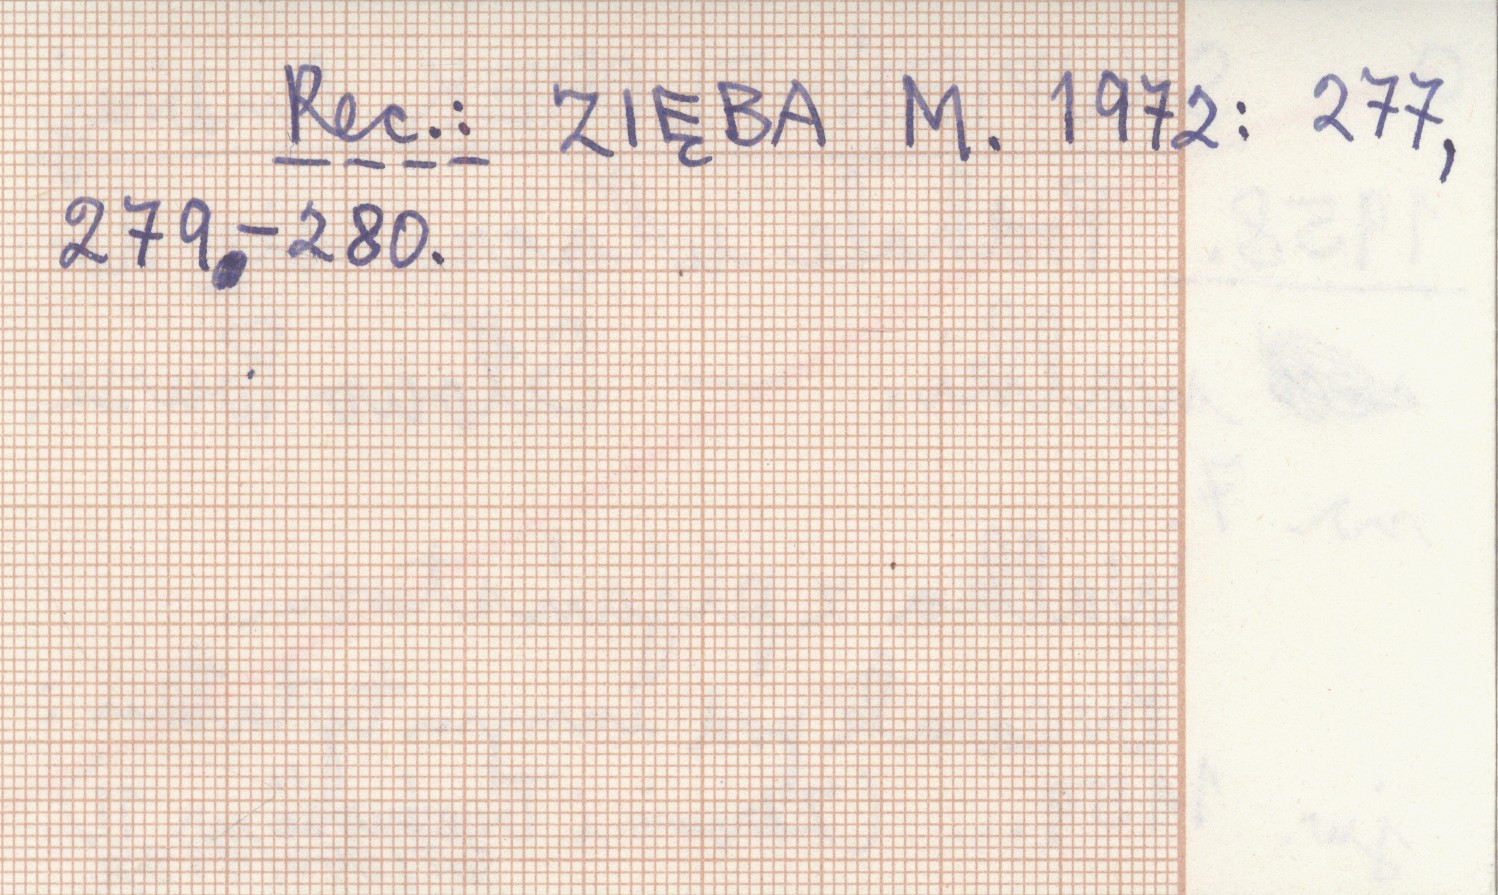 Rec.: ZIĘBA M. 1972: 277,
279-280.